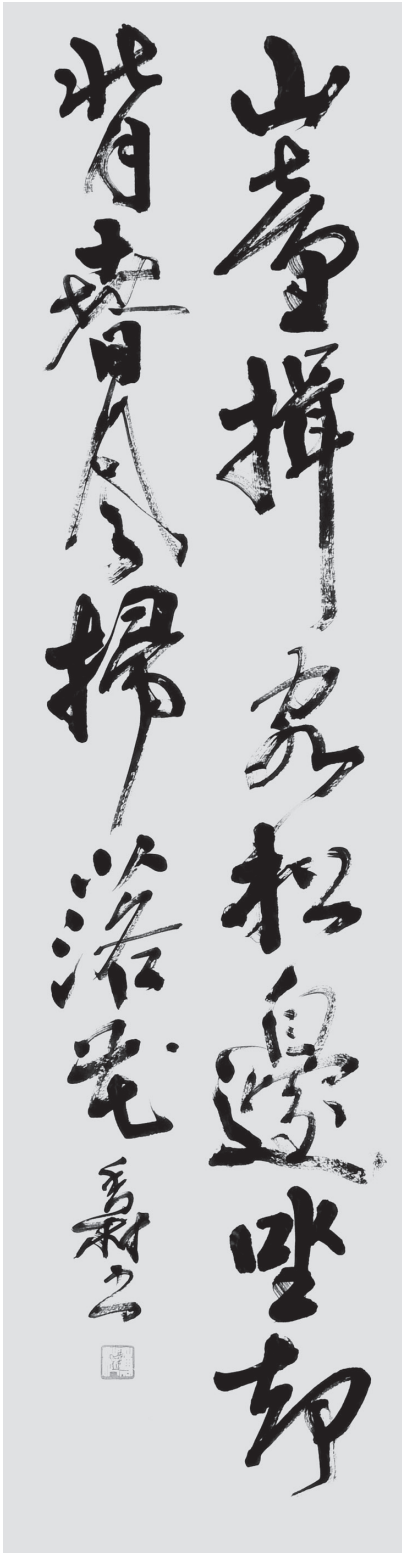 山童揖客松邊坐却
背春風掃落花